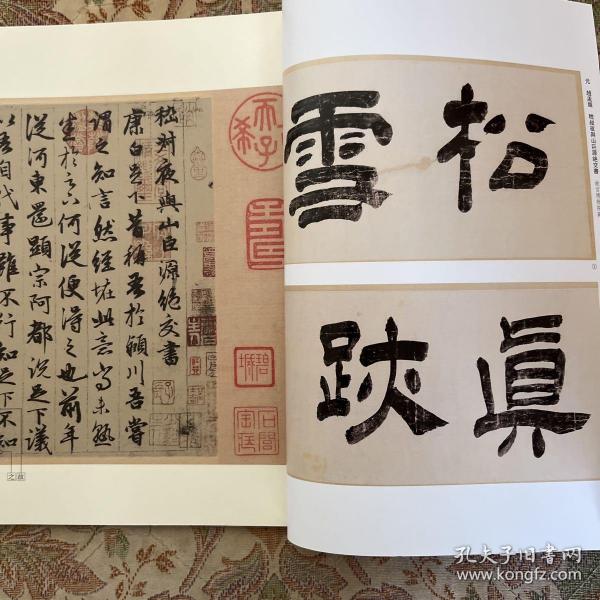 元 趙孟頫 嵇叔夜與山巨源絕交書
松雪
①
眞跡
嵇叔夜與山巨源絶交書
康白足下昔稱吾於潁川吾嘗
謂之知言然經恠此意尚未熟
悉於足下何從便得之也前年
從河東還顯宗阿都説足下議
以吾自代事雖不行知足下不知
故之
孔夫子旧书网
www.kongfz.com